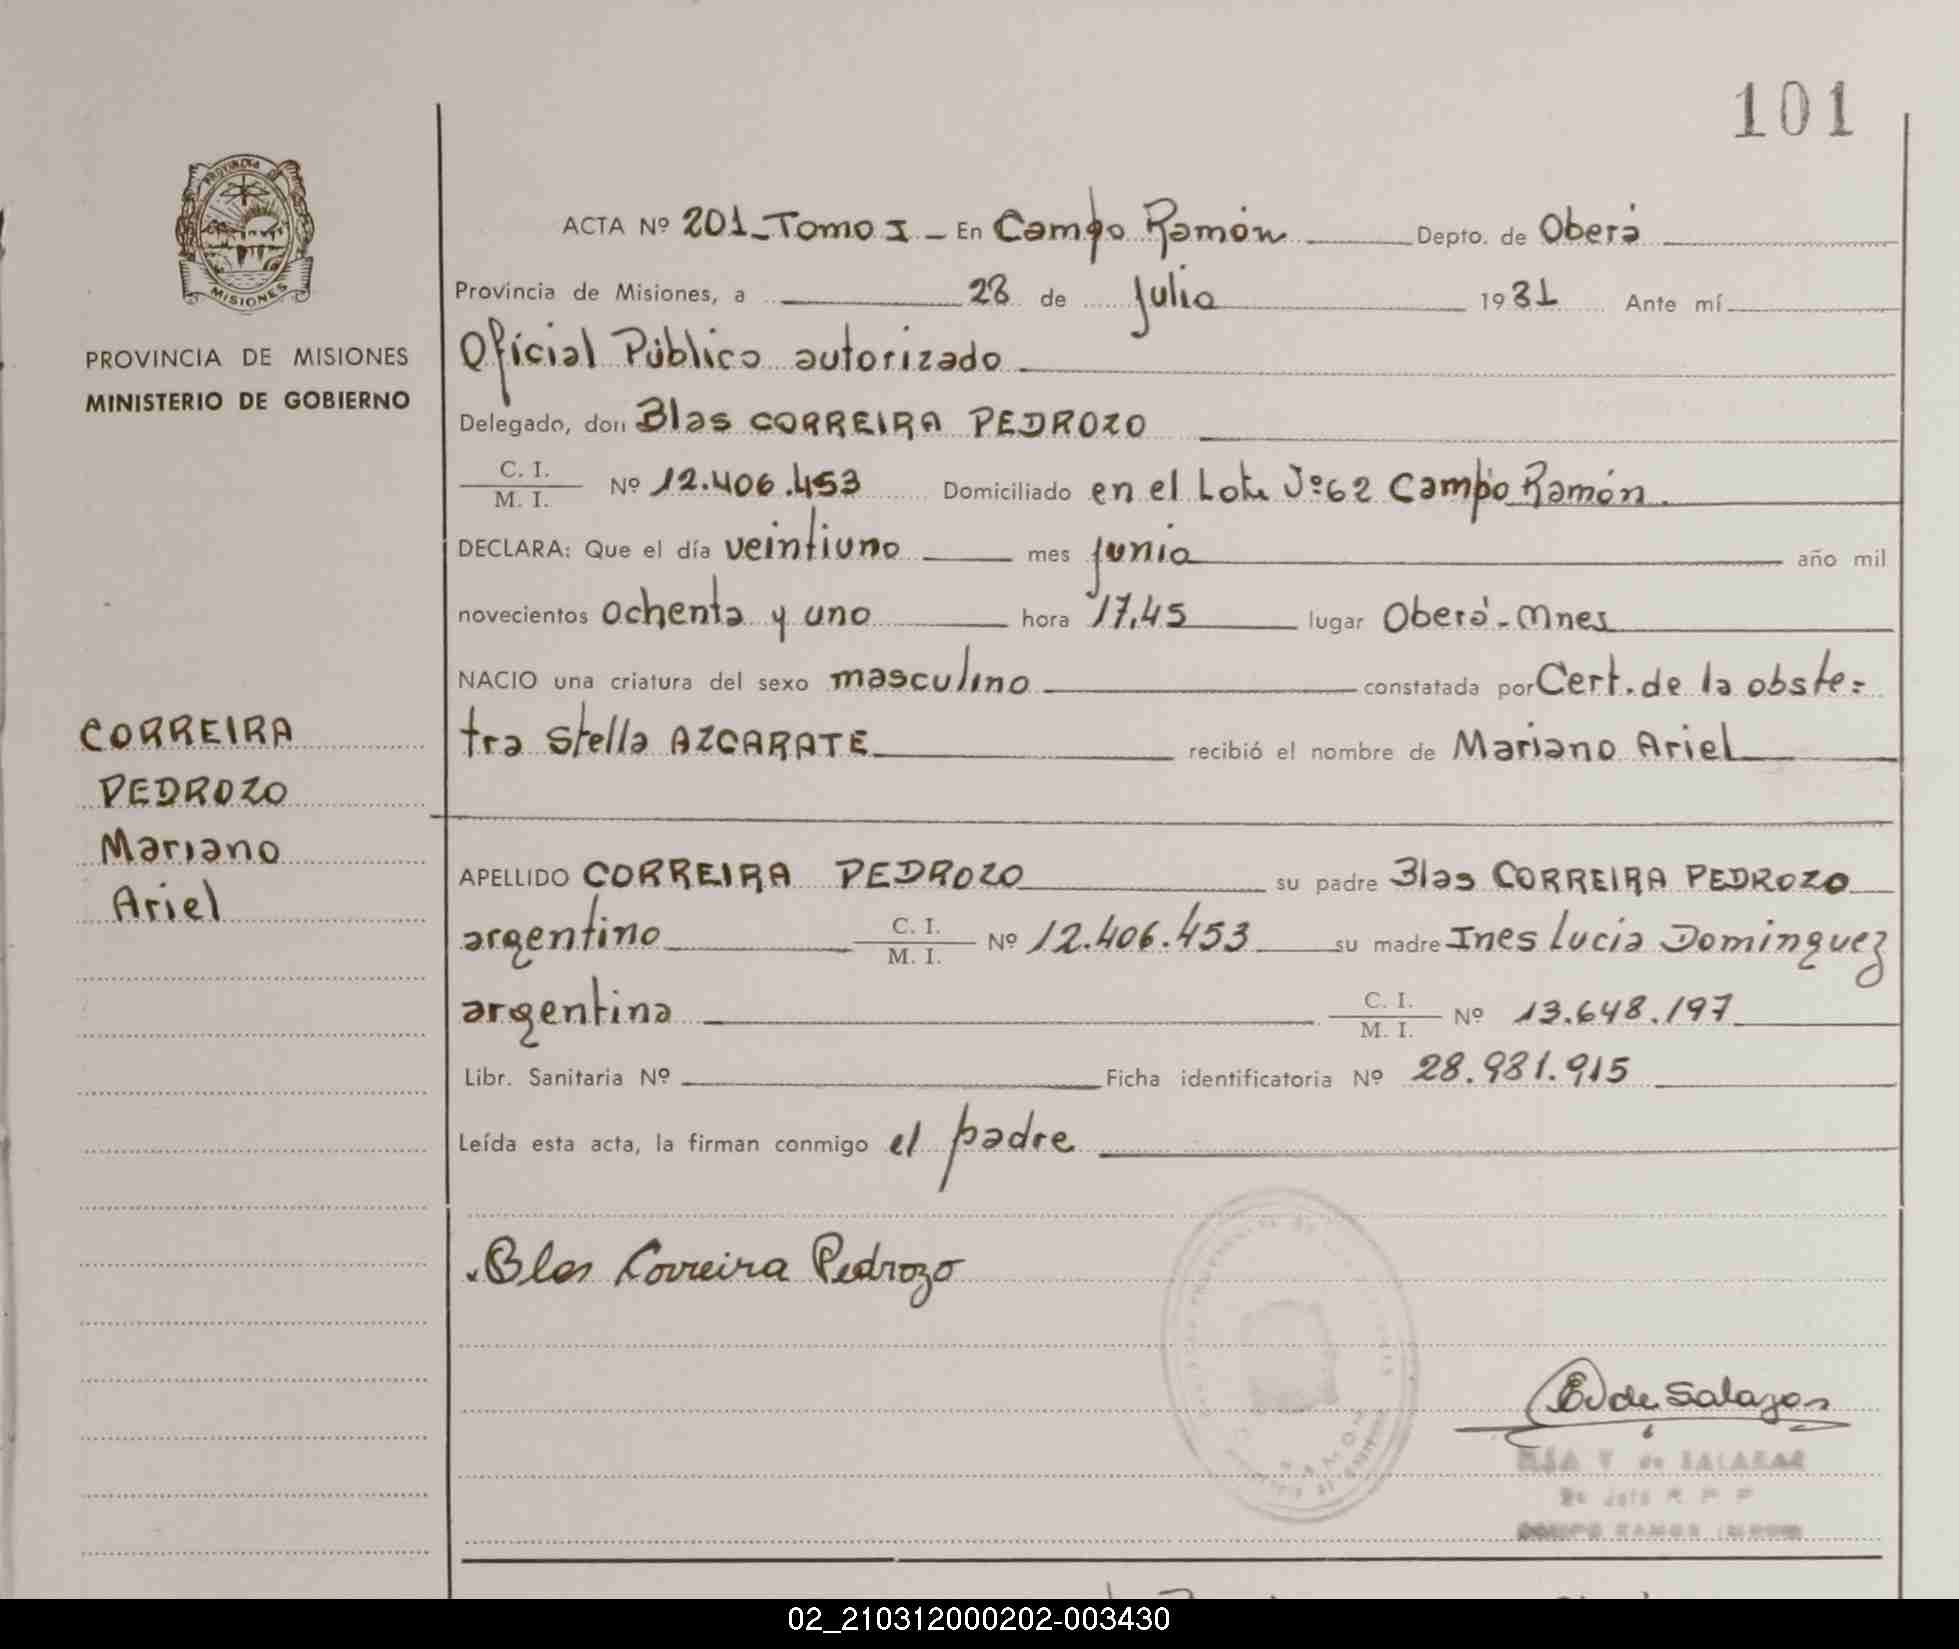 101
PROVINCIA
MISIONES
PROVINCIA DE MISIONES
MINISTERIO DE GOBIERNO
ACTA Nº 201_Tomo I _ En Campo Ramón Depto. de Oberá
Provincia de Misiones, a 28 de Julio 1981 Ante mí
Oficial Público autorizado
Delegado, don Blas CORREIRA PEDROZO
C. I.
M. I. Nº 12.406.453 Domiciliado en el Lote Nº62 Campo Ramón.
DECLARA: Que el día veintiuno mes junio año mil
novecientos ochenta y uno hora 17,45 lugar Oberá-Mnes
NACIO una criatura del sexo masculino constatada por Cert. de la obste=
tra Stella AZCARATE recibió el nombre de Mariano Ariel
CORREIRA
PEDROZO
Mariano
Ariel
APELLIDO CORREIRA PEDROZO su padre Blas CORREIRA PEDROZO
argentino C. I.
M. I. Nº 12.406.453 su madre Ines Lucia Dominguez
argentina C. I.
M. I. Nº 13.648.197
Libr. Sanitaria Nº Ficha identificatoria Nº 28.981.915
Leída esta acta, la firman conmigo el padre
Blas Correira Pedrozo
de Salazar
V de SALAZAR
02_210312000202-003430